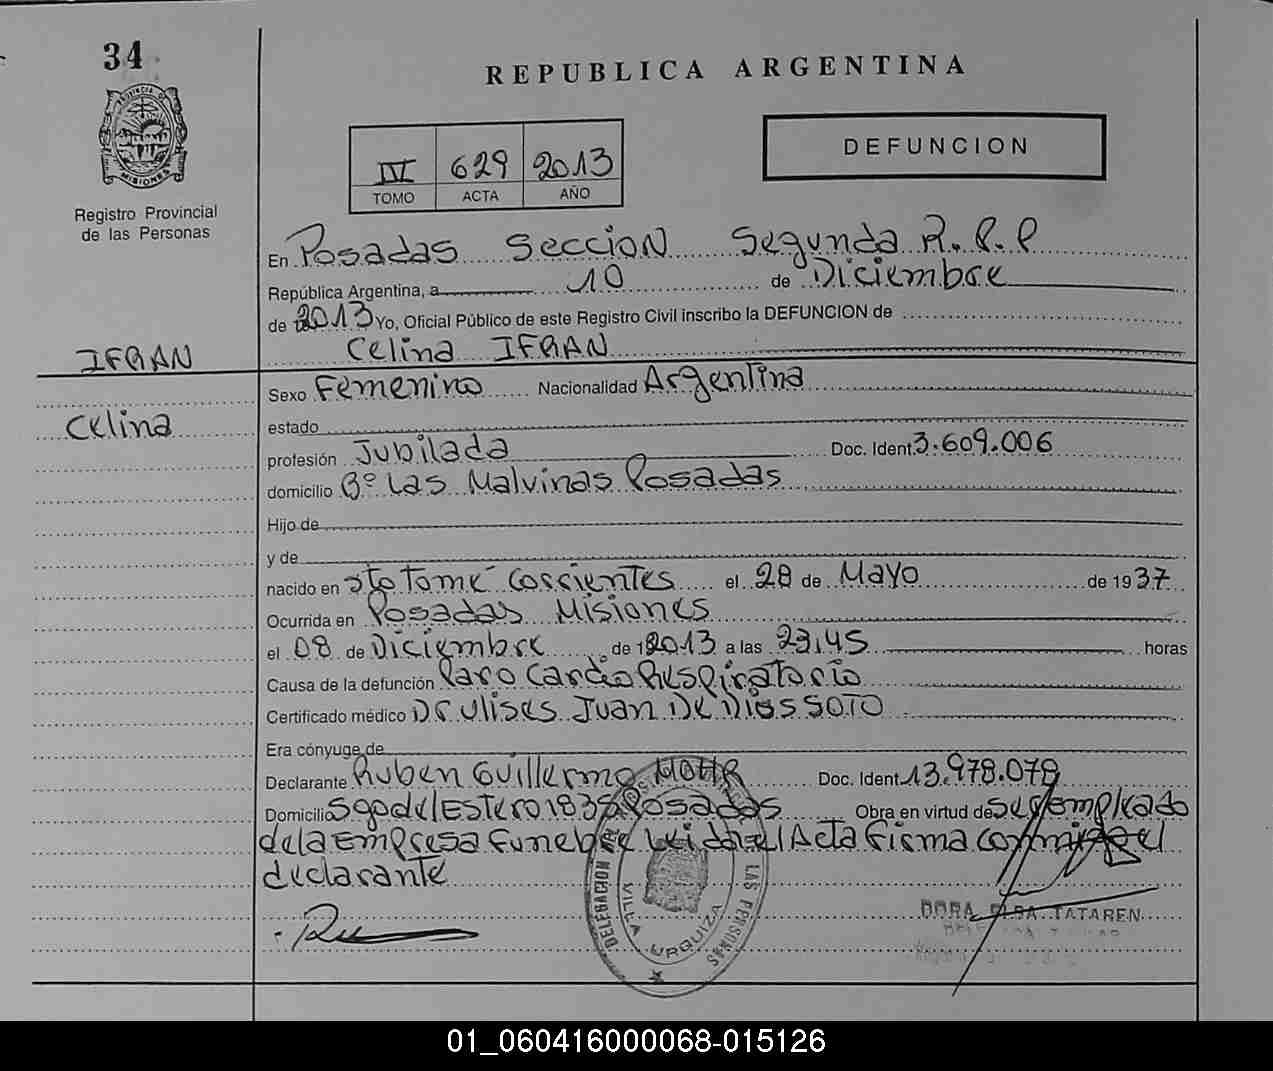 34
REPUBLICA ARGENTINA
PROVINCIA DE
MISIONES
Registro Provincial
de las Personas
IV 629 2013
TOMO ACTA AÑO
DEFUNCION
En Posadas Seccion Segunda R.P.P
República Argentina, a 10 de Diciembre
de 2013 Yo, Oficial Público de este Registro Civil inscribo la DEFUNCION de
IFRAN Celina IFRAN
Sexo Femenino Nacionalidad Argentina
Celina estado
profesión Jubilada Doc. Ident. 3.609.006
domicilio Bº Las Malvinas Posadas
Hijo de
y de
nacido en Sto Tomé Corrientes el 28 de Mayo de 1937
Ocurrida en Posadas Misiones
el 08 de Diciembre de 2013 a las 23,45 horas
Causa de la defunción Paro Cardio Respiratorio
Certificado médico Dr Ulises Juan De Dios SOTO
Era cónyuge de
Declarante Ruben Guillermo MOHR Doc. Ident. 13.978.078
Domicilio Sgo del Estero 1838 Posadas Obra en virtud de ser empleado
de la Empresa Funebre Leida el Acta firma conmigo el
declarante
DELEGACION LAS PERSONAS
VILLA URQUIZA
DORA ELBA TATAREN
01_060416000068-015126